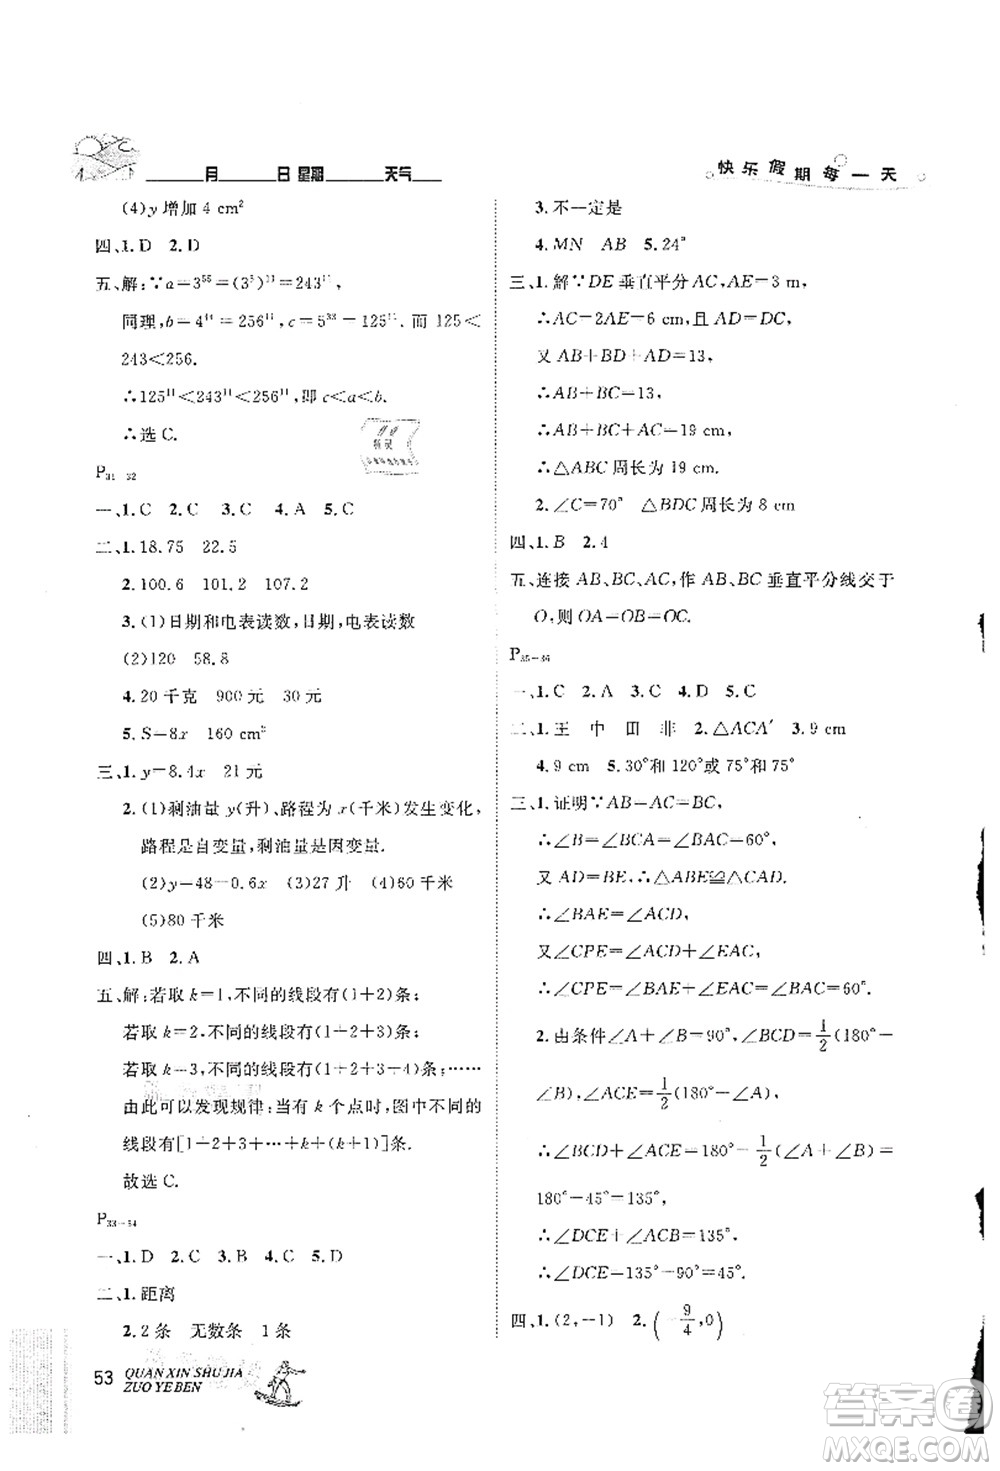 ____月____日 星期____天气____
快乐假期每一天
(4)y 增加 4 cm²
四、1. D 2. D
五、解:∵a=3⁵⁵=(3⁵)¹¹=243¹¹,
同理,b=4⁴⁴=256¹¹,c=5³³=125¹¹.而 125<
243<256.
∴125¹¹<243¹¹<256¹¹,即 c<a<b.
∴选 C.
P₃₁₋₃₂
一、1. C 2. C 3. C 4. A 5. C
二、1. 18.75 22.5
2. 100.6 101.2 107.2
3. (1)日期和电表读数,日期,电表读数
(2)120 58.8
4. 20 千克 900 元 30 元
5. S=8x 160 cm²
三、1. y=8.4x 21 元
2. (1)剩油量 y(升)、路程为 x(千米)发生变化,
路程是自变量,剩油量是因变量.
(2)y=48-0.6x (3)27 升 (4)60 千米
(5)80 千米
四、1. B 2. A
五、解:若取 k=1,不同的线段有(1+2)条;
若取 k=2,不同的线段有(1+2+3)条;
若取 k=3,不同的线段有(1+2+3+4)条;……
由此可以发现规律:当有 k 个点时,图中不同的
线段有[1+2+3+…+k+(k+1)]条.
故选 C.
P₃₃₋₃₄
一、1. D 2. C 3. B 4. C 5. D
二、1. 距离
2. 2 条 无数条 1 条
3. 不一定是
4. MN AB 5. 24°
三、1. 解∵DE 垂直平分 AC,AE=3 m,
∴AC=2AE=6 cm,且 AD=DC,
又 AB+BD+AD=13,
∴AB+BC=13,
∴AB+BC+AC=19,
∴△ABC 周长为 19 cm.
2. ∠C=70° △BDC 周长为 8 cm
四、1. B 2. 4
五、连接 AB、BC、AC,作 AB、BC 垂直平分线交于
O,则 OA=OB=OC.
P₃₅₋₃₆
一、1. C 2. A 3. C 4. D 5. C
二、1. 王 中 田 非 2. △ACA′ 3. 9 cm
4. 9 cm 5. 30°和 120°或 75°和 75°
三、1. 证明∵AB=AC=BC,
∴∠B=∠BCA=∠BAC=60°,
又 AD=BE,∴△ABE≌△CAD.
∴∠BAE=∠ACD,
又∠CPE=∠ACD+∠EAC,
∴∠CPE=∠BAE+∠EAC=60°.
2. 由条件∠A+∠B=90°,∠BCD=1/2(180°-
∠B),∠ACE=1/2(180°-∠A)
∴∠BCD+∠ACE=180°-1/2(∠A+∠B)=
180°-45°=135°,
∴∠DCE+∠ACB=135°,
∴∠DCE=135°-90°=45°.
四、1. (2,-1) 2. (-9/4,0)
53 QUAN XIN SHU JIA
ZUO YE BEN
答案圈
MXQE.COM